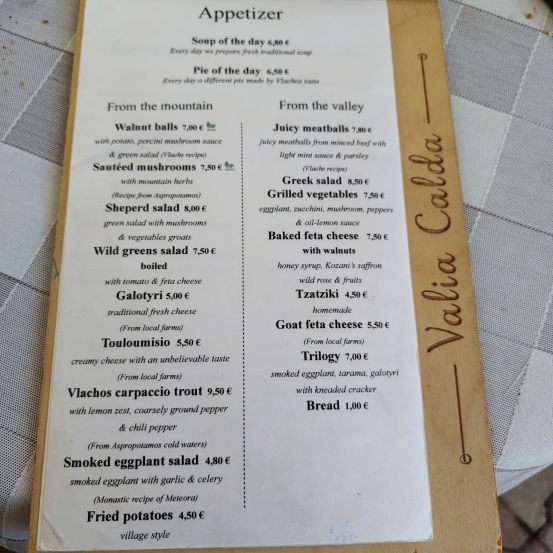 Appetizer
Soup of the day 6,80 €
Every day we prepare fresh traditional soup
Pie of the day 6,50 €
Every day a different pie made by Vlachos taste
From the mountain
Walnut balls 7,00 €
with potato, porcini mushroom sauce
& green salad (Vlachs recipe)
Sautéed mushrooms 7,50 €
with mountain herbs
(Recipe from Aspropotamos)
Sheperd salad 8,00 €
green salad with mushrooms
& vegetables groats
Wild greens salad 7,50 €
boiled
with tomato & feta cheese
Galotyri 5,00 €
traditional fresh cheese
(From local farms)
Touloumisio 5,50 €
creamy cheese with an unbelievable taste
(From local farms)
Vlachos carpaccio trout 9,50 €
with lemon zest, coarsely ground pepper
& chili pepper
(From Aspropotamos cold waters)
Smoked eggplant salad 4,80 €
smoked eggplant with garlic & celery
(Monastic recipe of Meteora)
Fried potatoes 4,50 €
village style
From the valley
Juicy meatballs 7,80 €
juicy meatballs from minced beef with
light mint sauce & parsley
(Vlachs recipe)
Greek salad 8,50 €
Grilled vegetables 7,50 €
eggplant, zucchini, mushroom, peppers
& oil-lemon sauce
Baked feta cheese 7,50 €
with walnuts
honey syrup, Kozani's saffron
wild rose & fruits
Tzatziki 4,50 €
homemade
Goat feta cheese 5,50 €
(From local farms)
Trilogy 7,00 €
smoked eggplant, tarama, galotyri
with kneaded cracker
Bread 1,00 €
Valia Calda